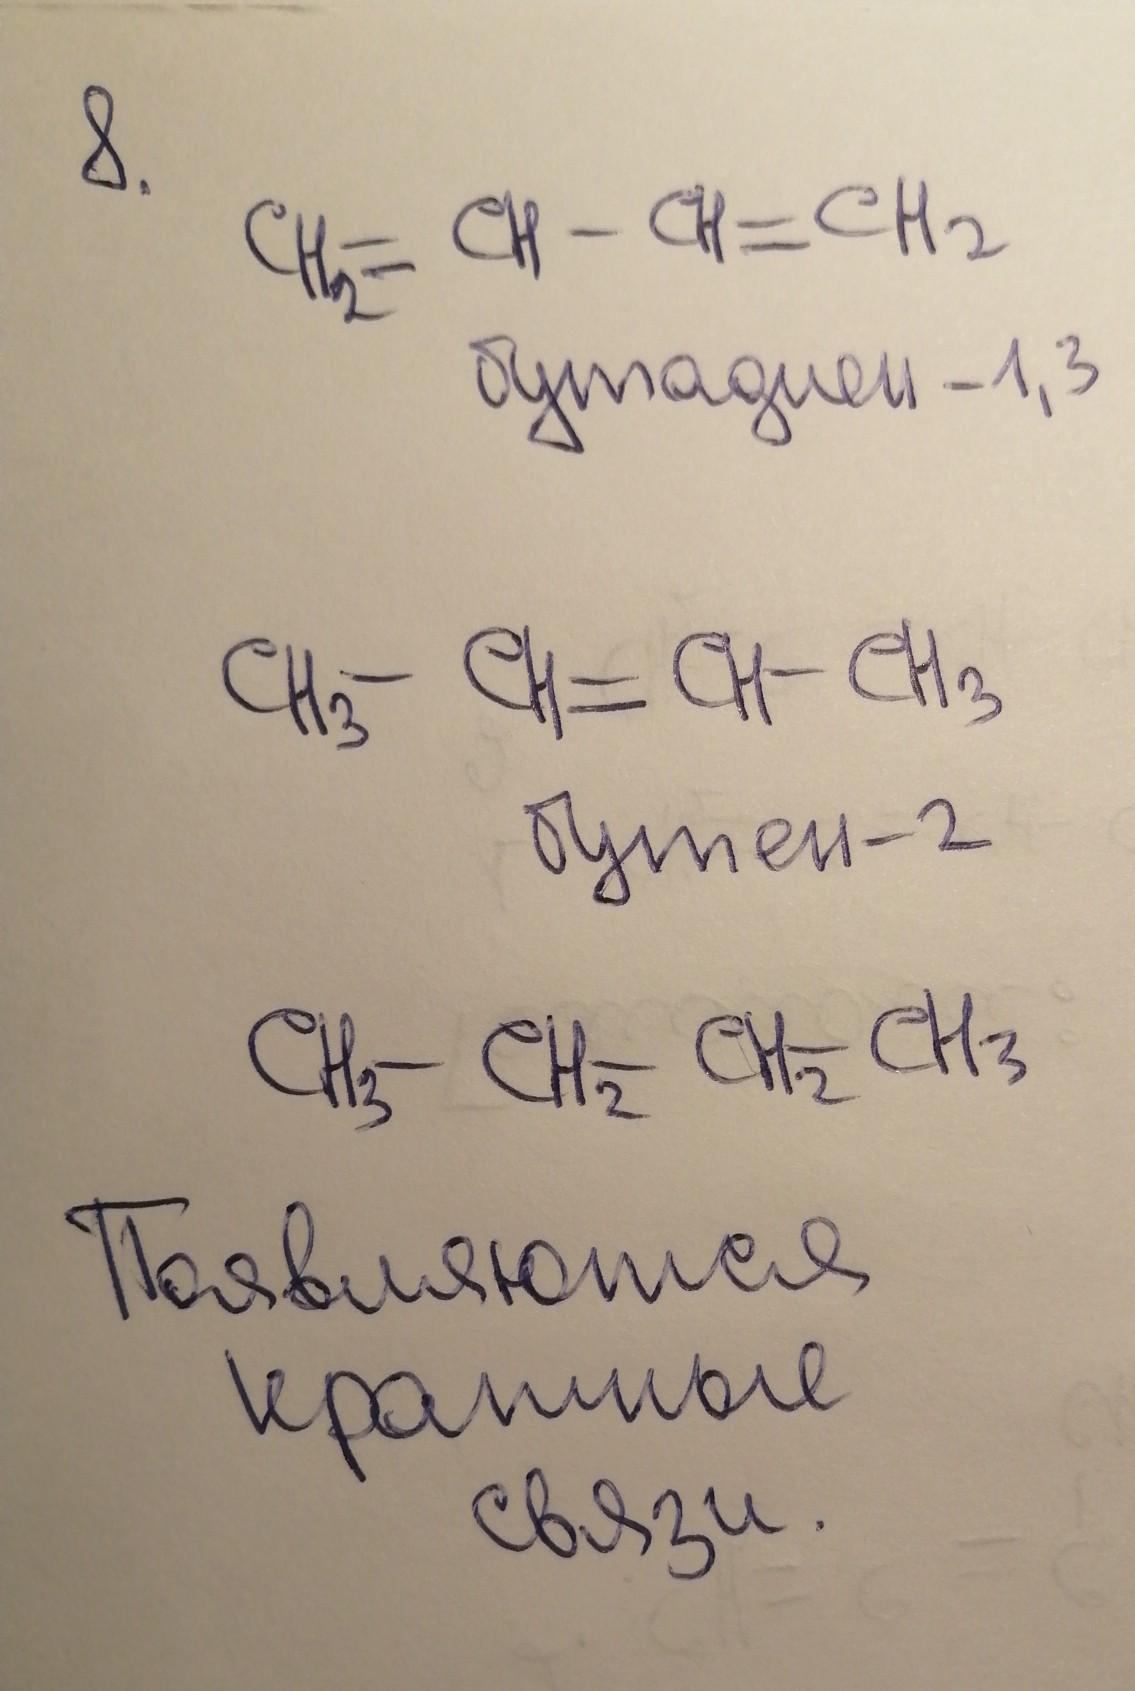 8.
CH₂=CH-CH=CH₂
бутадиен-1,3
CH₃-CH=CH-CH₃
бутен-2
CH₃-CH₂-CH₂-CH₃
Появляются
кратные
связи.